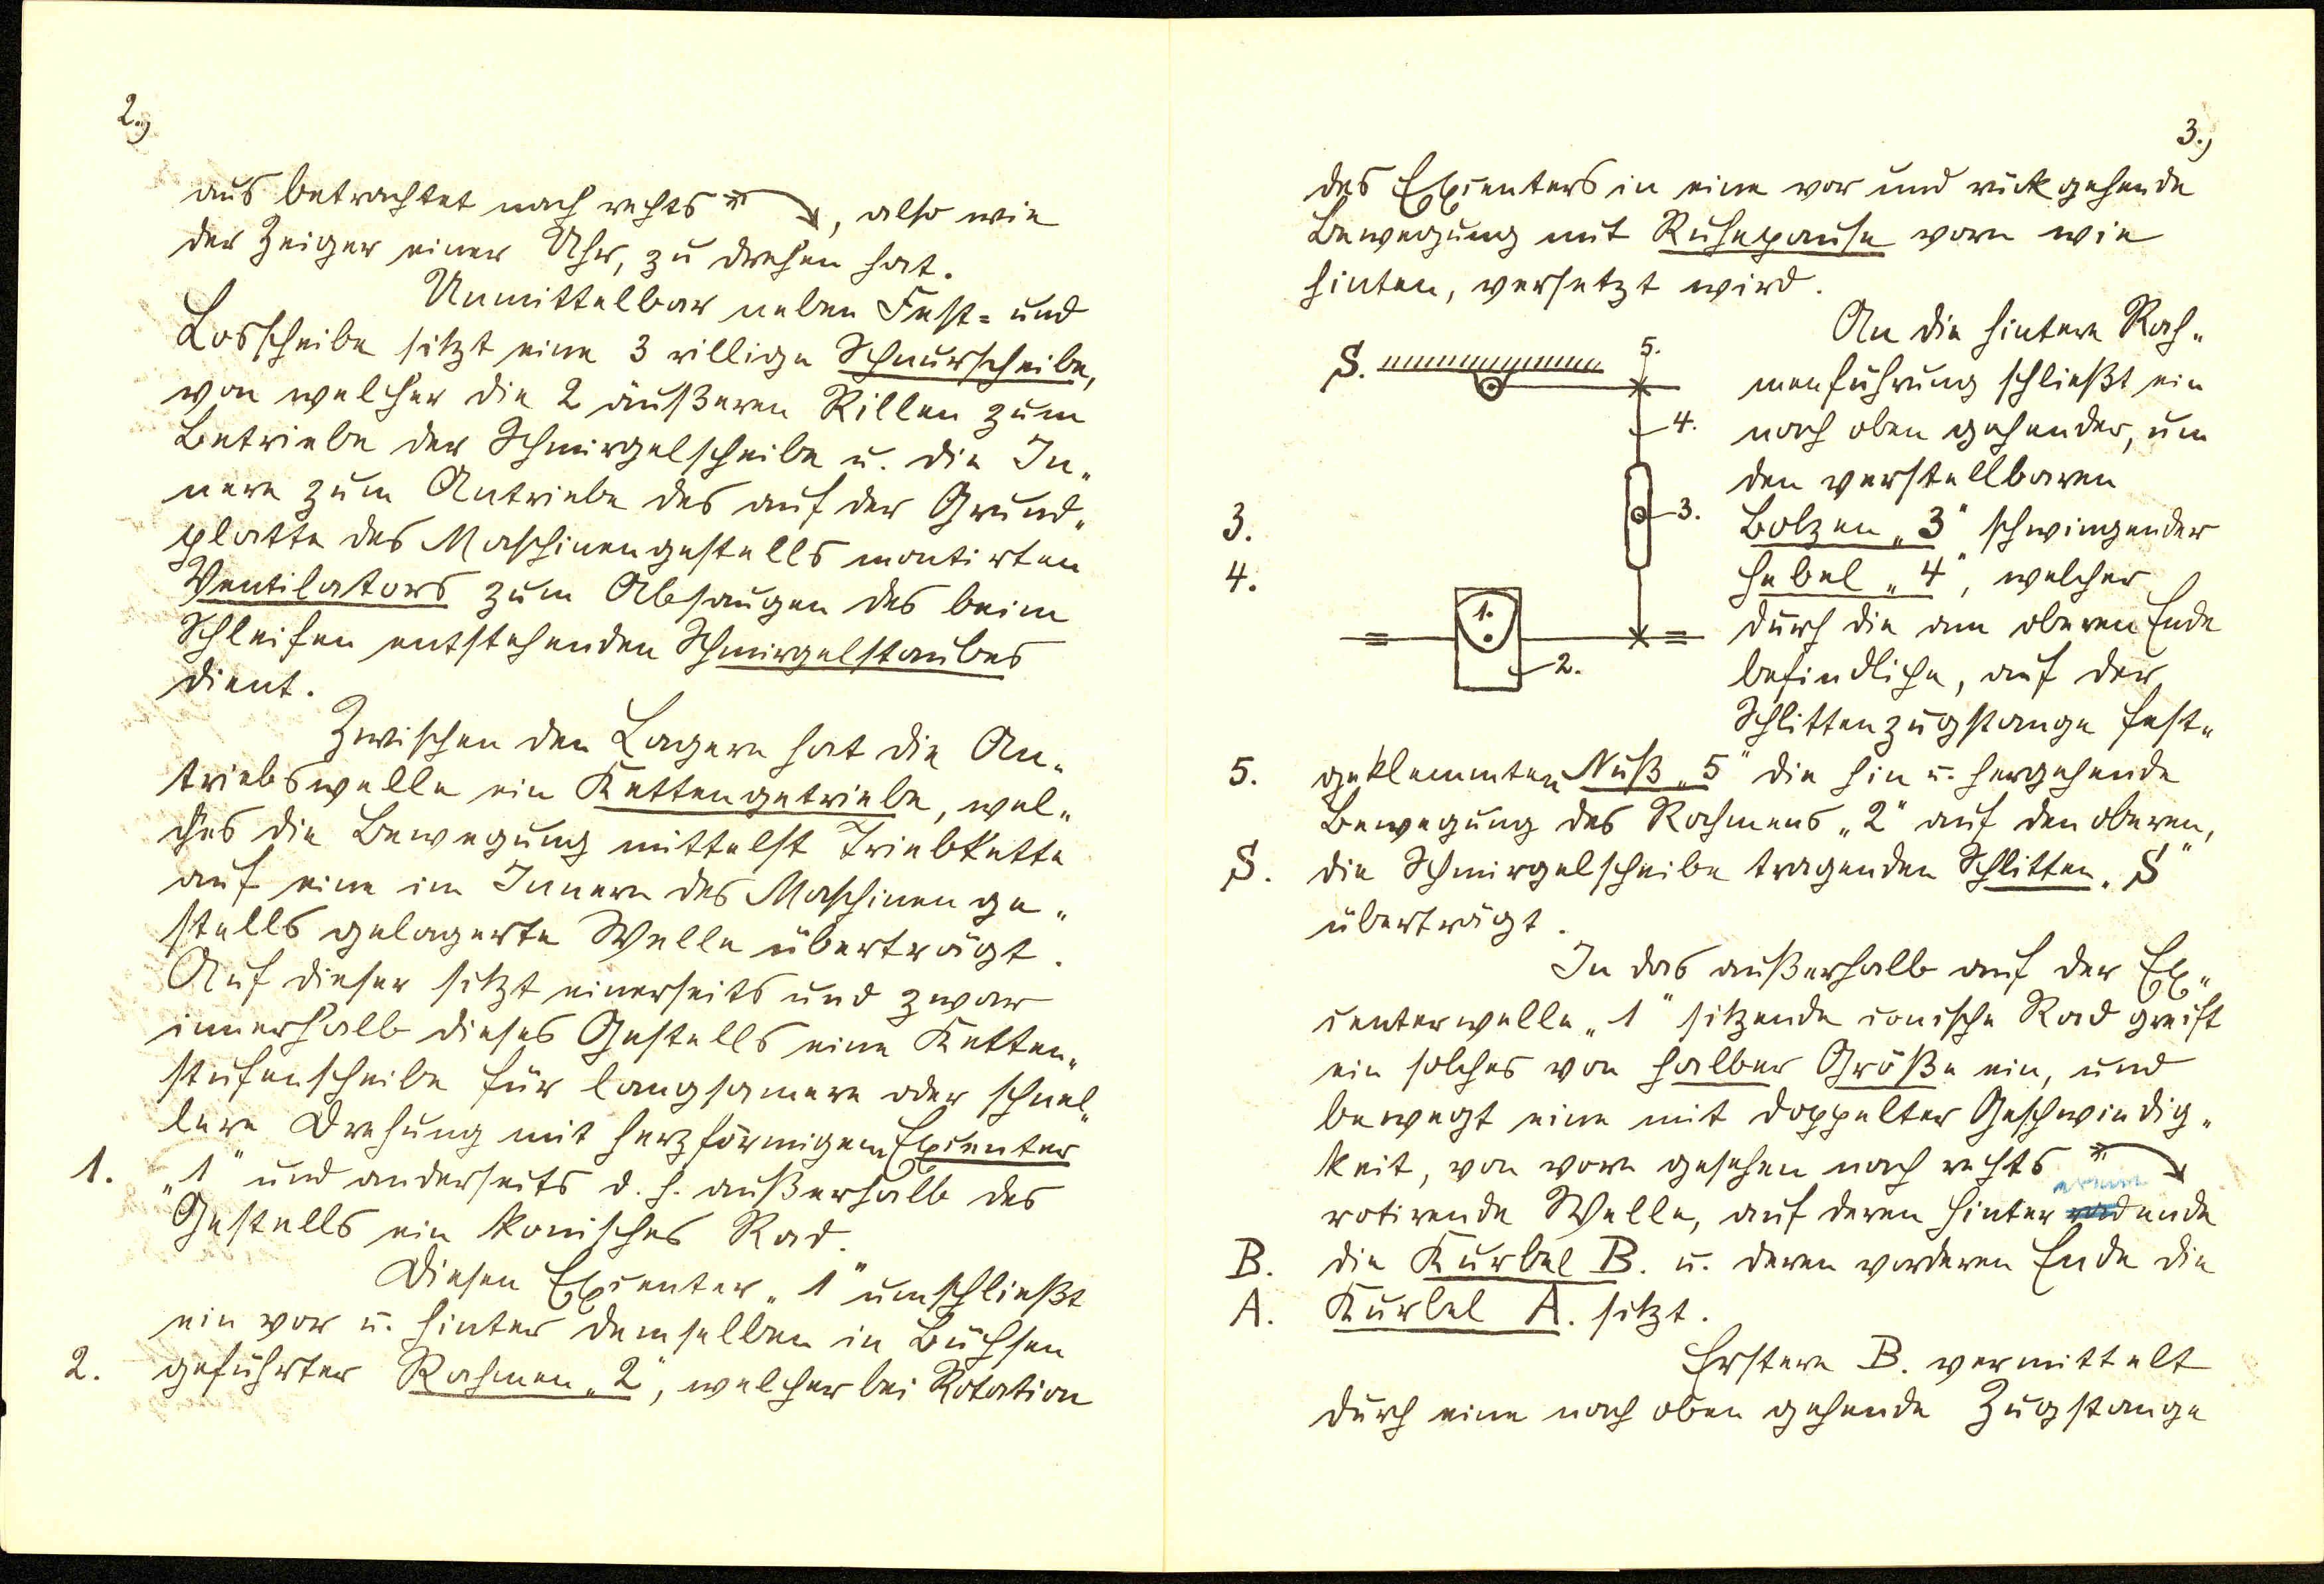 2.)
aus betrachtet nach rechts, also wie
der Zeiger einer Uhr, zu drehen hat.
Unmittelbar neben Fest= und
Losscheibe sitzt eine 3 rillige Schnurscheibe,
von welcher die 2 äußeren Rillen zum
Betriebe der Schmirgelscheibe u. die In„
nere zum Antriebe des auf der Grund„
platte des Maschinengestells montirten
Ventilators zum Absaugen des beim
Schleifen entstehenden Schmirgelstaubes
dient.
Zwischen den Lagern hat die An„
triebswelle ein Kettengetriebe, wel„
ches die Bewegung mittelst Triebkette
auf eine im Innern des Maschinenge„
stells gelagerte Welle überträgt.
Auf dieser sitzt einerseits und zwar
innerhalb dieses Gestells eine Ketten„
stufenscheibe für langsamere oder schnel„
lere Drehung mit herzförmigem Excenter
1. „1“ und anderseits d. h. außerhalb des
Gestells ein konisches Rad.
Diesen Excenter „1“ umschließt
ein vor u. hinter demselben in Büchsen
2. geführter Rahmen „2“, welcher bei Rotation
3.)
des Excenters in eine vor und rück gehende
Bewegung mit Ruhepause vorn wie
hinten, versetzt wird.
An die hintere Rah„
menführung schließt ein
nach oben gehender, um
den verstellbaren
3. Bolzen „3“ schwingender
4. Hebel „4“, welcher
durch die am oberen Ende
befindliche, auf der
Schlittenzugstange fest„
5. geklemmten Nuß „5“ die hin u. hergehende
Bewegung des Rahmens „2“ auf den oberen,
S. die Schmirgelscheibe tragenden Schlitten „S“
überträgt.
S.
5.
4.
3.
1.
2.
In das außerhalb auf der Ex„
centerwelle „1“ sitzende conische Rad greift
ein solches von halber Größe ein, und
bewegt eine mit doppelter Geschwindig„
keit, von vorn gesehen nach rechts
rotirende Welle, auf deren hinter ende
B. die Kurbel B. u. deren vorderen Ende die
A. Kurbel A. sitzt.
Erstere B. vermittelt
durch eine nach oben gehende Zugstange